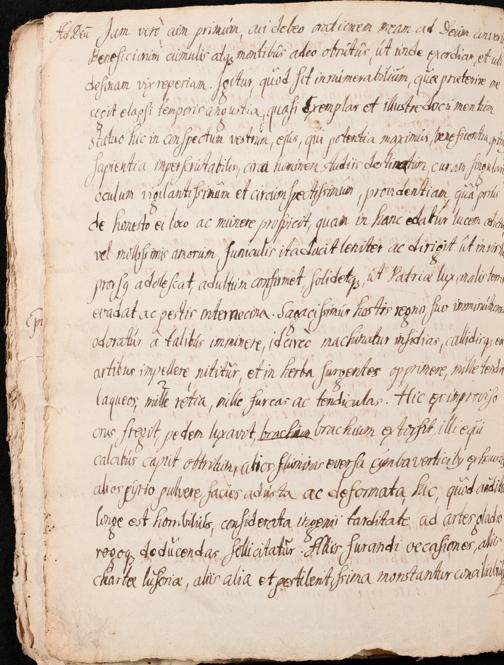 Ad Deũ Jam verò cum primùm, cui debeo orationem meam ad Deum
Beneficiorum cumulis atq; montibus adeo obrutus, ut unde exordiar, et ubi
desinam vix reperiam. Igitur quod sit innumerabilium, quæ præterire me
cogit elapsi temporis angustia, quasi Exemplar et illustre loci
statuo hic in conspectum vestrum, ejus, qui potentia maximus, beneficentia
sapientia imperscrutabilis, circa hominem studiis destinatum curam
oculum vigilantissimum et circumspectissimum, providentiam, qua prius
de honesto ei loco ac munere prospicit, quam in hanc edatur lucem
vel mollissimis amorum funiculis ita ducit leniter ac dirigit ut in
prorsq adolescat, adultum confirmet, solidetq;, ut Patriæ lux, malis
evadat ac pestis internecina. Sagacissimus hostis regno suo
odoratur à talibus imminere, idcirco machinatur insidias, callidisq;
artibus impellere nititur, et in herba surgentes opprimere, mille
laqueos, mille retia, mille furcas ac tendiculas. Hic ex improviso
crus fregit, pedem luxavit, brachium extorsit, illi equi
calcibus caput obtritum, alios fluminis eversa cymba
alios pyrio pulvere, facies adusta ac deformata, hic, quod
longe est horribilius, considerata ingenii tarditate, ad artes
deducendas sollicitatur. Aliis furandi occasiones, aliis
chartæ lusoriæ, aliis alia et pestilentissima monstrantur
Epi